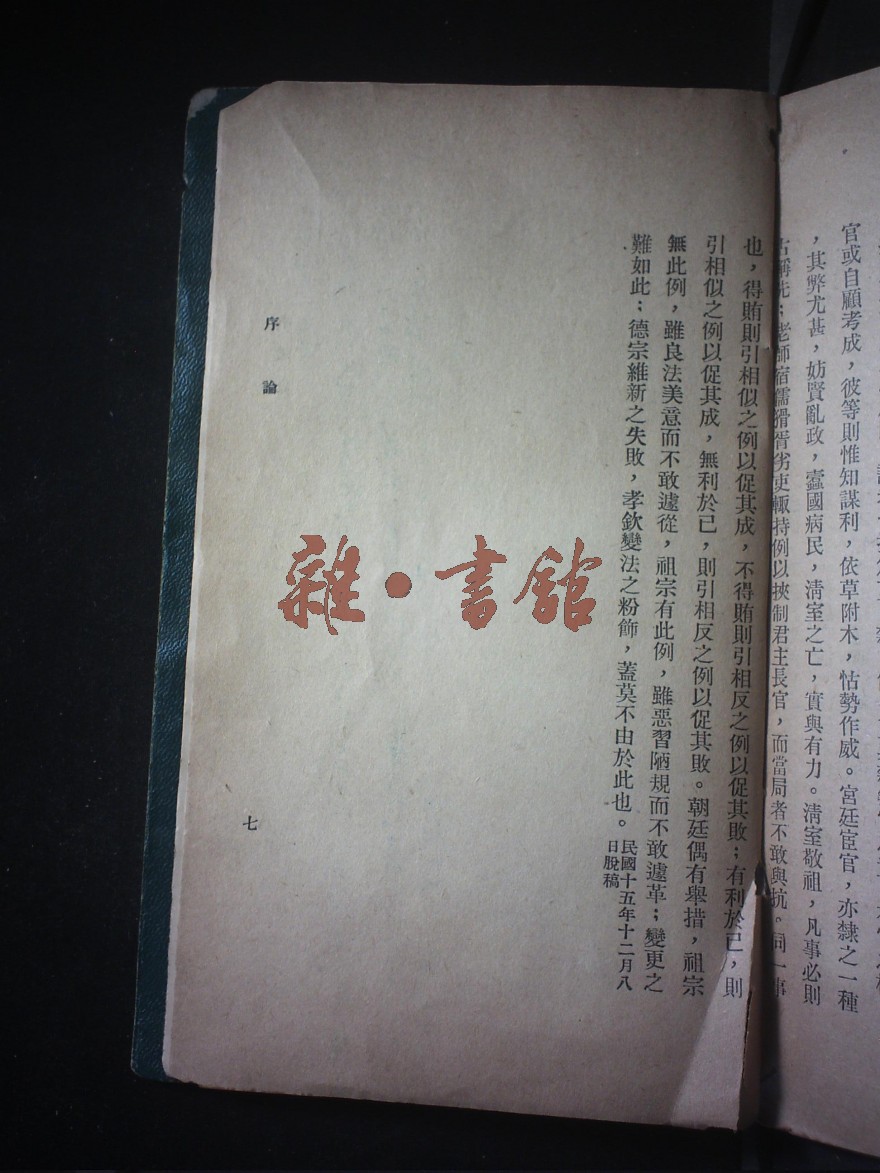 官或自顧考成，彼等則惟知謀利，依草附木，怙勢作威。宮廷宦官，亦隸之一種
，其弊尤甚，妨賢亂政，蠹國病民，淸室之亡，實與有力。淸室敬祖，凡事必則
古稱先；老師宿儒猾胥劣吏輒持例以挾制君主長官，而當局者不敢與抗。同一事
也，得賄則引相似之例以促其成，不得賄則引相反之例以促其敗；有利於已，則
引相似之例以促其成，無利於已，則引相反之例以促其敗。朝廷偶有舉措，祖宗
無此例，雖良法美意而不敢遽從，祖宗有此例，雖惡習陋規而不敢遽革；變更之
難如此；德宗維新之失敗，孝欽變法之粉飾，蓋莫不由於此也。
民國十五年十二月八
日脫稿
序論
七
雜·書館